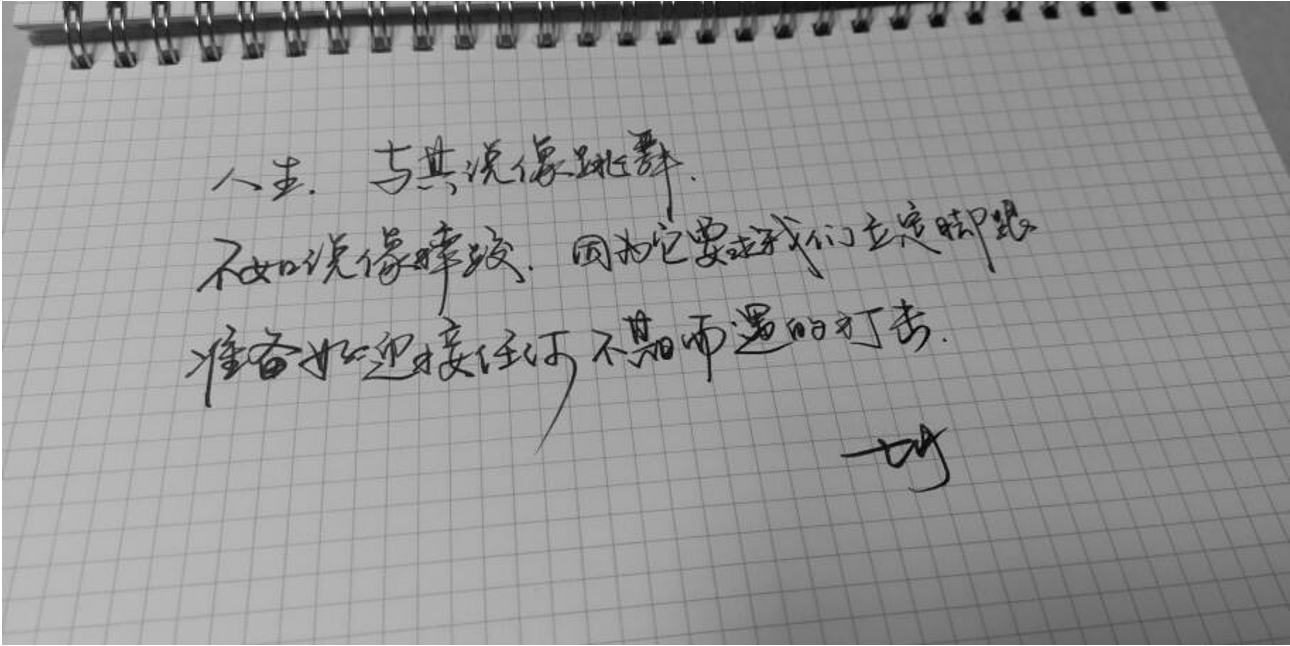 人生. 与其说像跳舞.
不如说像摔跤. 因为它要求我们立定脚跟
准备好迎接任何不期而遇的打击.